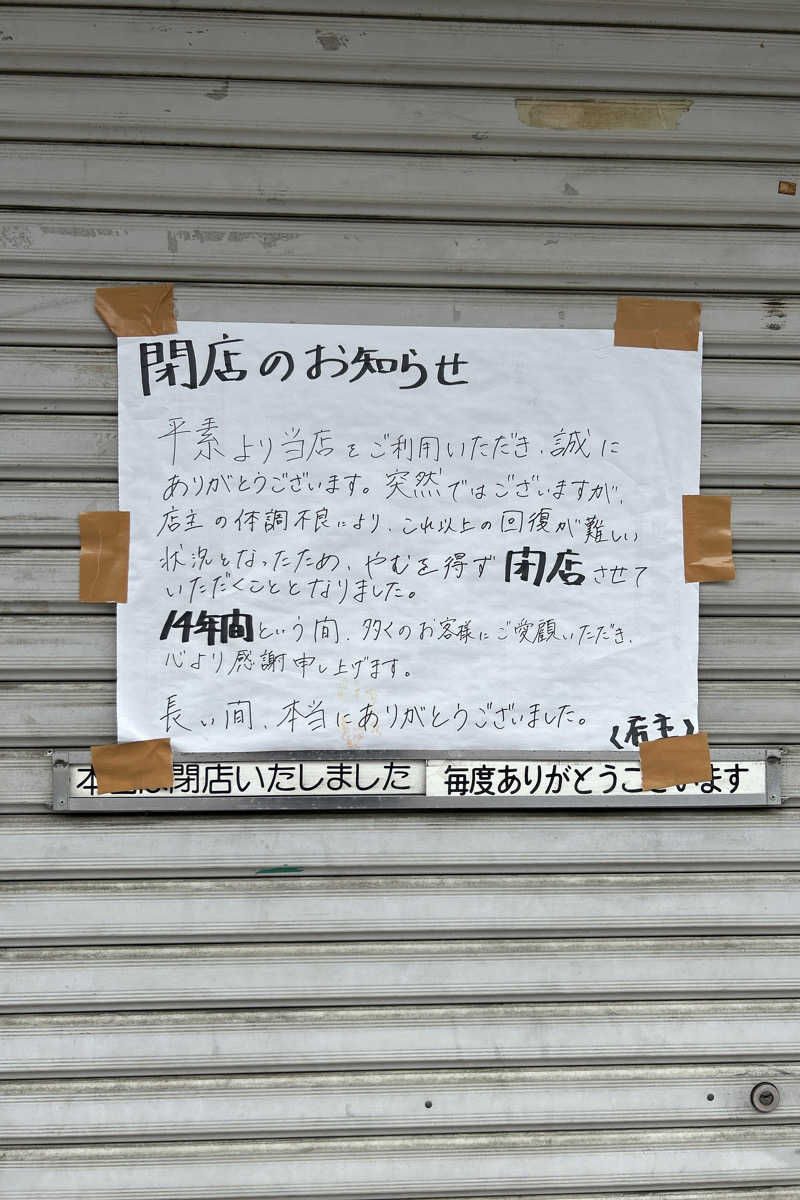 閉店のお知らせ
平素より当店をご利用いただき、誠に
ありがとうございます。突然ではございますが、
店主の体調不良により、これ以上の回復が難しい
状況となったため、やむを得ず閉店させて
いただくこととなりました。
14年間という間、多くのお客様にご愛顧いただき、
心より感謝申し上げます。
長い間、本当にありがとうございました。
閉店いたしました 毎度ありがとうございます